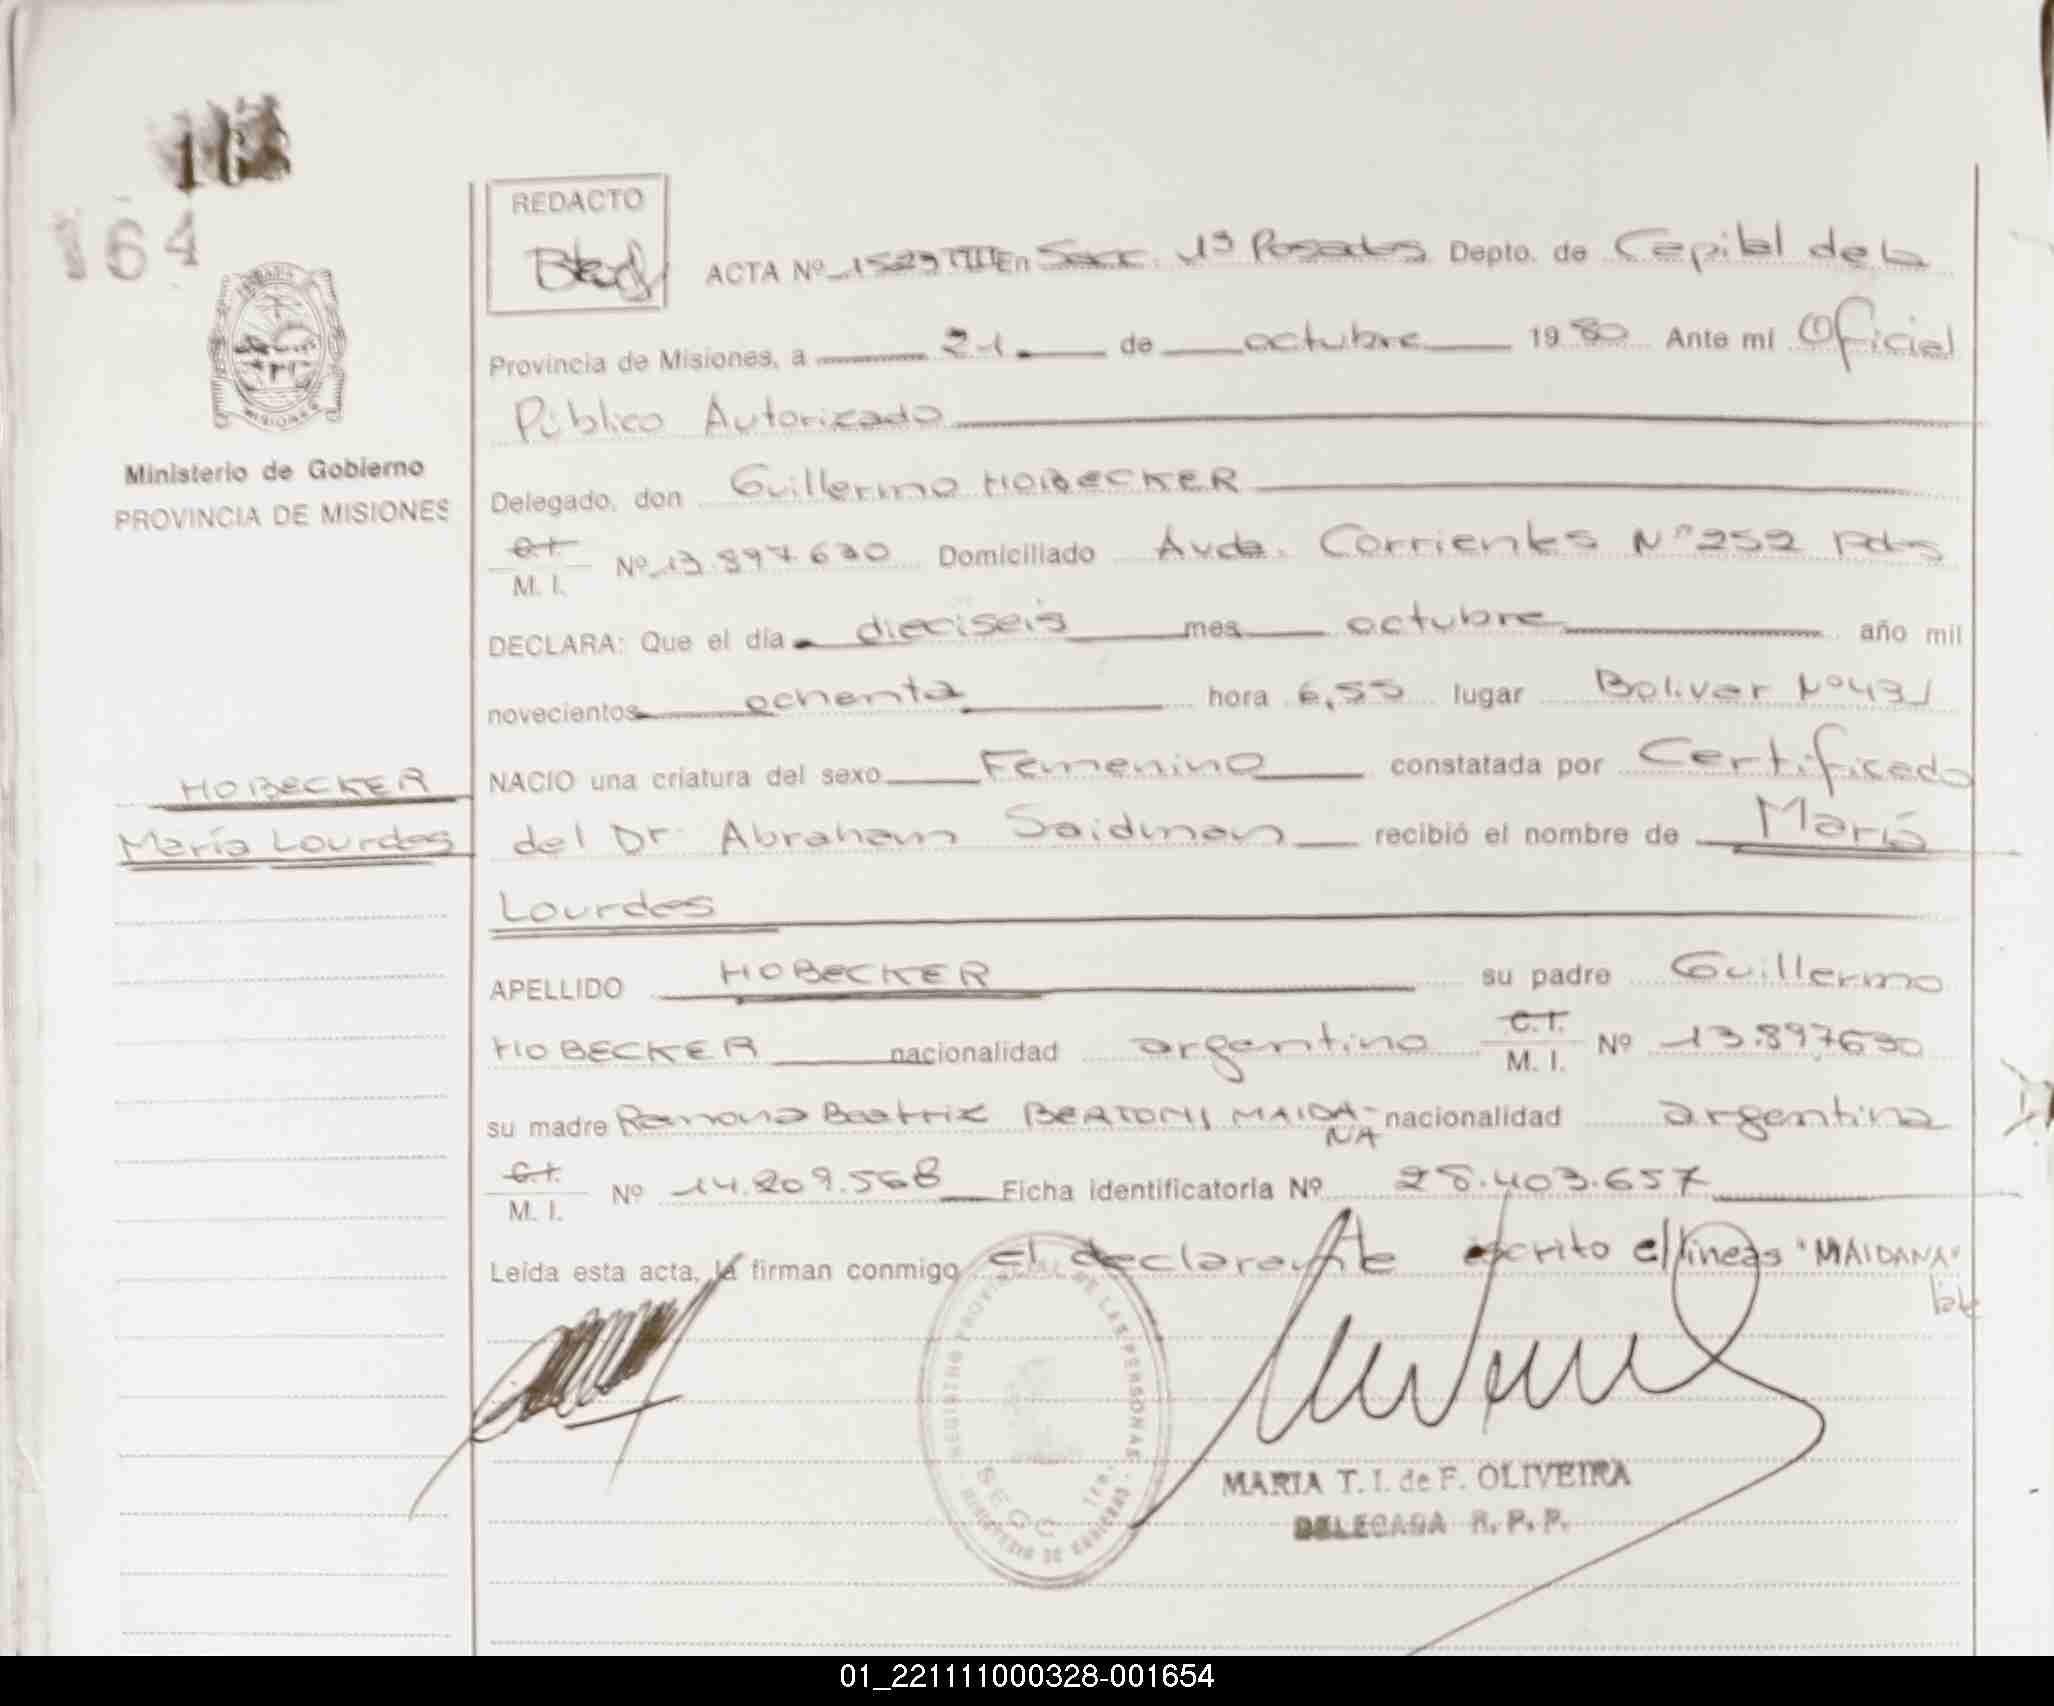 164
REDACTO
ACTA Nº 1529 TIII En Secc. 1ª Posadas Depto. de Capital de la
Provincia de Misiones, a 21 de octubre 1980 Ante mí Oficial
Público Autorizado
Ministerio de Gobierno
PROVINCIA DE MISIONES
Delegado, don Guillermo HOBECKER
C.I.
M. I. Nº 13.897.630 Domiciliado Avda. Corrientes Nº 252 Pdas
DECLARA: Que el día dieciseis mes octubre año mil
novecientos ochenta hora 6,55 lugar Bolivar Nº 431
HOBECKER
NACIO una criatura del sexo Femenino constatada por Certificado
María Lourdes
del Dr Abraham Saidman recibió el nombre de María
Lourdes
APELLIDO HOBECKER su padre Guillermo
HOBECKER nacionalidad argentino C.I. M. I. Nº 13.897630
su madre Ramona Beatriz BERTONI MAIDA-
NA nacionalidad argentina
C.I.
M. I. Nº 14.209.568 Ficha identificatoria Nº 28.403.657
Leída esta acta, la firman conmigo el declarante escrito e/lineas "MAIDANA"
vale
REGISTRO PROVINCIAL DE LAS PERSONAS
SECC. 1ra.
MINISTERIO DE GOBIERNO
MARIA T. I. de F. OLIVEIRA
DELEGADA R. P. P.
01_221111000328-001654